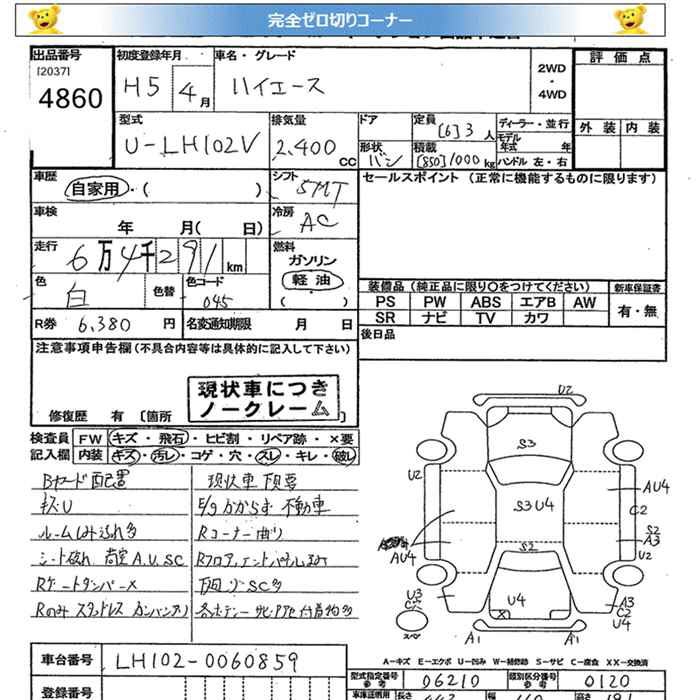 完全ゼロ切りコーナー
出品番号
[2037]
4860
初度登録年月
H5 4月
車名・グレード
ハイエース
2WD
・
4WD
評価点
外装 内装
型式
U-LH102V
排気量
2,400 CC
ドア
形状
バン
定員
[6] 3 人
積載
[850] 1000 kg
ディーラー・並行
モデル
年式 年
ハンドル 左・右
車歴
自家用・( )
シフト
5MT
セールスポイント (正常に機能するものに限ります)
車検
年 月( 日)
冷房
AC
走行
6万4千291km
燃料
ガソリン
軽油
色
白
色替
色コード
045
装備品(純正品に限り○をつけてください) 新車保証書
PS PW ABS エアB AW
SR ナビ TV カワ
有・無
R券 6,380 円
名変通知期限 月 日
後日品
注意事項申告欄(不具合内容等は具体的に記入して下さい)
現状車につき
ノークレーム
修復歴 有 [箇所
検査員 FW キズ・飛石・ヒビ割・リペア跡・×要
記入欄 内装 キズ・汚レ・コゲ・穴・スレ・キレ・破レ
現状車 下見要
キズU
E/gかからず 不動車
ルームしみ汚れ多
Rコーナー曲り
シート破れ 荷室A.U.SC
Rゲートダンパー×
下回りSC多
U2
S3
U2
AU4
C2
S3 U4
S2
A3
U2
AU4
S2
U3
U4
A3
C2
U4
A1
A1
A-キズ E-エクボ U-凹み W-補修跡 S-サビ C-腐食 XX-交換済
車台番号
LH102-0060859
型式指定番号
参考
06210
類別区分番号
参考
0120
登録番号
車庫証明用
長さ
幅
高さ